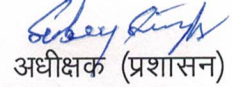 अधीक्षक (प्रशासन)